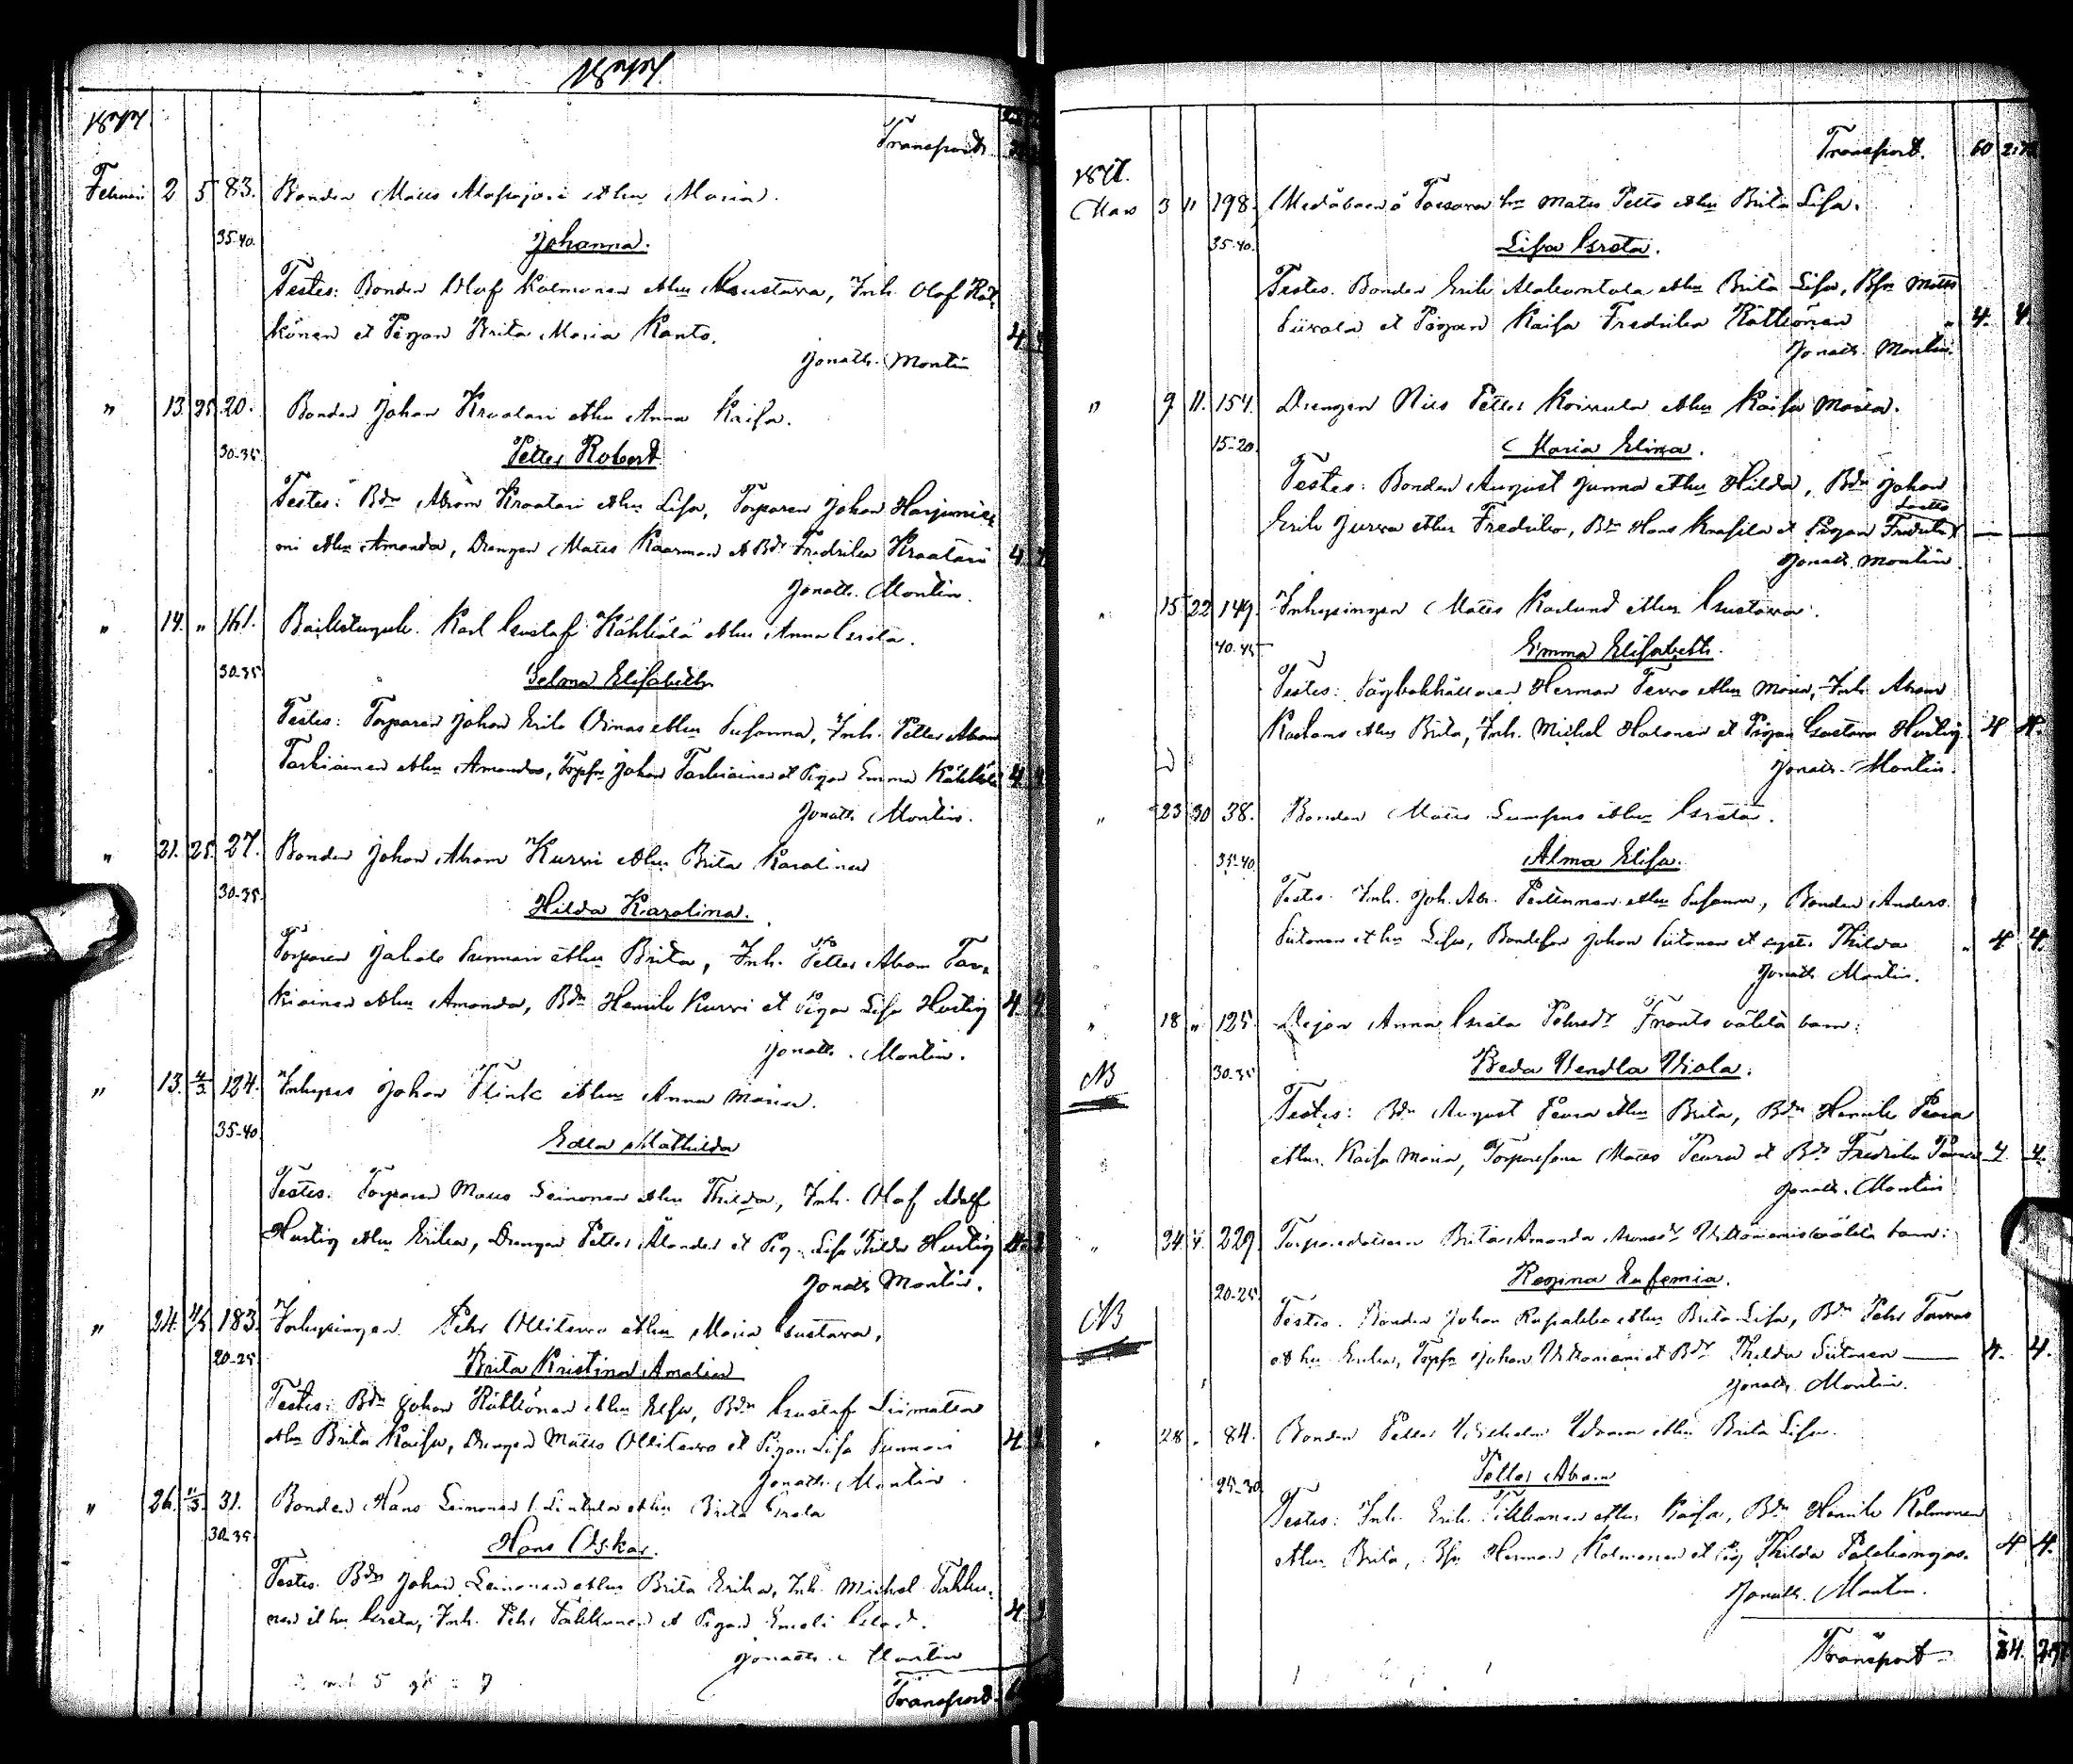 1877.
1877.
Transport
Februari 2 5 83. Bonden Matts Alapajari et hu Maria.
35-40. Johanna.
Testes: Bonden Olof Kolmonen et hu Gustava, Inh. Olof Rät-
könen et Pigan Brita Maria Kanto. 4.
Jonath. Montin
" 13 25 20. Bonden Johan Kraatari et hu Anna Kaisa.
30-35 Petter Robert
Testes: Bdn Abram Kraatari et hu Lisa, Torparen Johan Harjunie-
mi et hu Amanda, Drengen Matts Kaarman et Bdr Fredrika Kraatari 4
Jonath. Montin.
" 14. " 161. Karl Gustaf Kähkölä et hu Anna Greta.
30-35 Selma Elisabeth
Testes: Torparen Johan Erik Oinas et hu Susanna, Inh. Petter Abram
Tarkiainen et hu Amanda, Torpfn Johan Tarkiainen et Pigan Emma Kähkölä 4
Jonath Montin.
" 21. 25 27. Bonden Johan Abram Kurvi et hu Brita Karolina
30-35. Hilda Karolina.
Torparen Jakob Sunnari et hu Brita, Inh. Petter Abram Tar-
kiainen et hu Amanda, Bdn Henrik Kurvi et Pigan Lisa Hurtig 4
Jonath. Montin.
" 13. 4/3 124. Inhyses Johan Flink et hu Anna Maria.
35-40 Edla Mathilda
Testes: Torparen Matts Leinonen et hu Thilda, Inh. Olof Adolf
Hurtig et hu Erika, Drengen Petter Ålander et Pig. Lisa Thilda Hurtig 4
Jonath Montin.
" 24. 4/3 183. Inhysingen Pehr Ollitervo et hu Maria Gustava,
20-25 Brita Kristina Amalia
Testes: Bdn Johan Rätkönen et hu Elsa, Bdn Gustaf Liimatta
et hu Brita Kaisa, Drengen Matts Ollitervo et Pigan Lisa Sunnari 4.
Jonath. Montin
" 26. 11/3. 31. Bonden Hans Leinonen l. Lintula et hu Brita Greta
30-35 Hans Oskar.
Testes. Bdn Johan Leinonen et hu Brita Erika, Inh. Michel Takku-
nen et hu Greta, Inh. Pehr Takkunen et Pigan 4.
Jonath. Montin
Transport
Transport. 60
1877.
Mars 3 11 198. hu Matts Petto et hu Brita Lisa.
35-40. Lisa Greta.
Testes. Bonden Erik Alakontola et hu Brita Lisa, Bfn Matts
Siivola et Pigan Kaisa Fredrika Rätkönen " 4. 4
Jonath. Montin.
" 9 11. 154. Drengen Nils Petter Koivula et hu Kaisa Maria.
15-20 Maria Elina.
Testes: Bonden August Junna et hu Hilda, Bdn Johan
Erik Jurva et hu Fredrika, Bdn Hans Knasila et Pigan Fredrika
Jonath. Montin.
" 15 22 149. Inhysingen Matts Karlund et hu Gustava.
40-45 Emma Elisabeth.
Testes: Herman Tervo et hu Maria, Inh. Abram
et hu Brita, Inh. Michel Halonen et Pigan Gustava Hurtig 4 4.
Jonath. Montin.
" 23 30 38. Bonden Matts Lumpus et hu Greta.
35-40 Alma Elisa.
Testes. Inh. Joh. Abr. et hu Susanna, Bonden Anders
Siitonen et hu Lisa, Bondeson Johan Siitonen et syster Thilda " 4 4.
Jonath Montin.
" 18 " 125. Pigan Anna Greta Pehrsdr Frants oäkta barn:
NB 30-35 Beda Vendla Viola.
Testes: Bdn August Peura et hu Brita, Bdn Henrik Peura
et hu Kaisa Maria, Torparesonen Matts Peura et Bdr Fredrika 4 4.
Jonath. Montin
" 24 229. Torparedottren Brita Amanda oäkta barn:
NB 20-25 Regina Eufemia.
Testes. Bonden Johan et hu Brita Lisa, Bdn Pehr
et hu Erika, Torpfn Johan et Bdr Thilda Siitonen 4. 4.
Jonath. Montin.
" 28 " 84. Bonden Petter Vilhelm et hu Brita Lisa.
25-30 Petter Abram
Testes: Inh. Erik Tikkanen et hu Kaisa, Bdn Henrik Kolmonen
et hu Brita, Bfn Herman Kolmonen et Pig Thilda 4 4.
Jonath. Montin.
Transport 84.